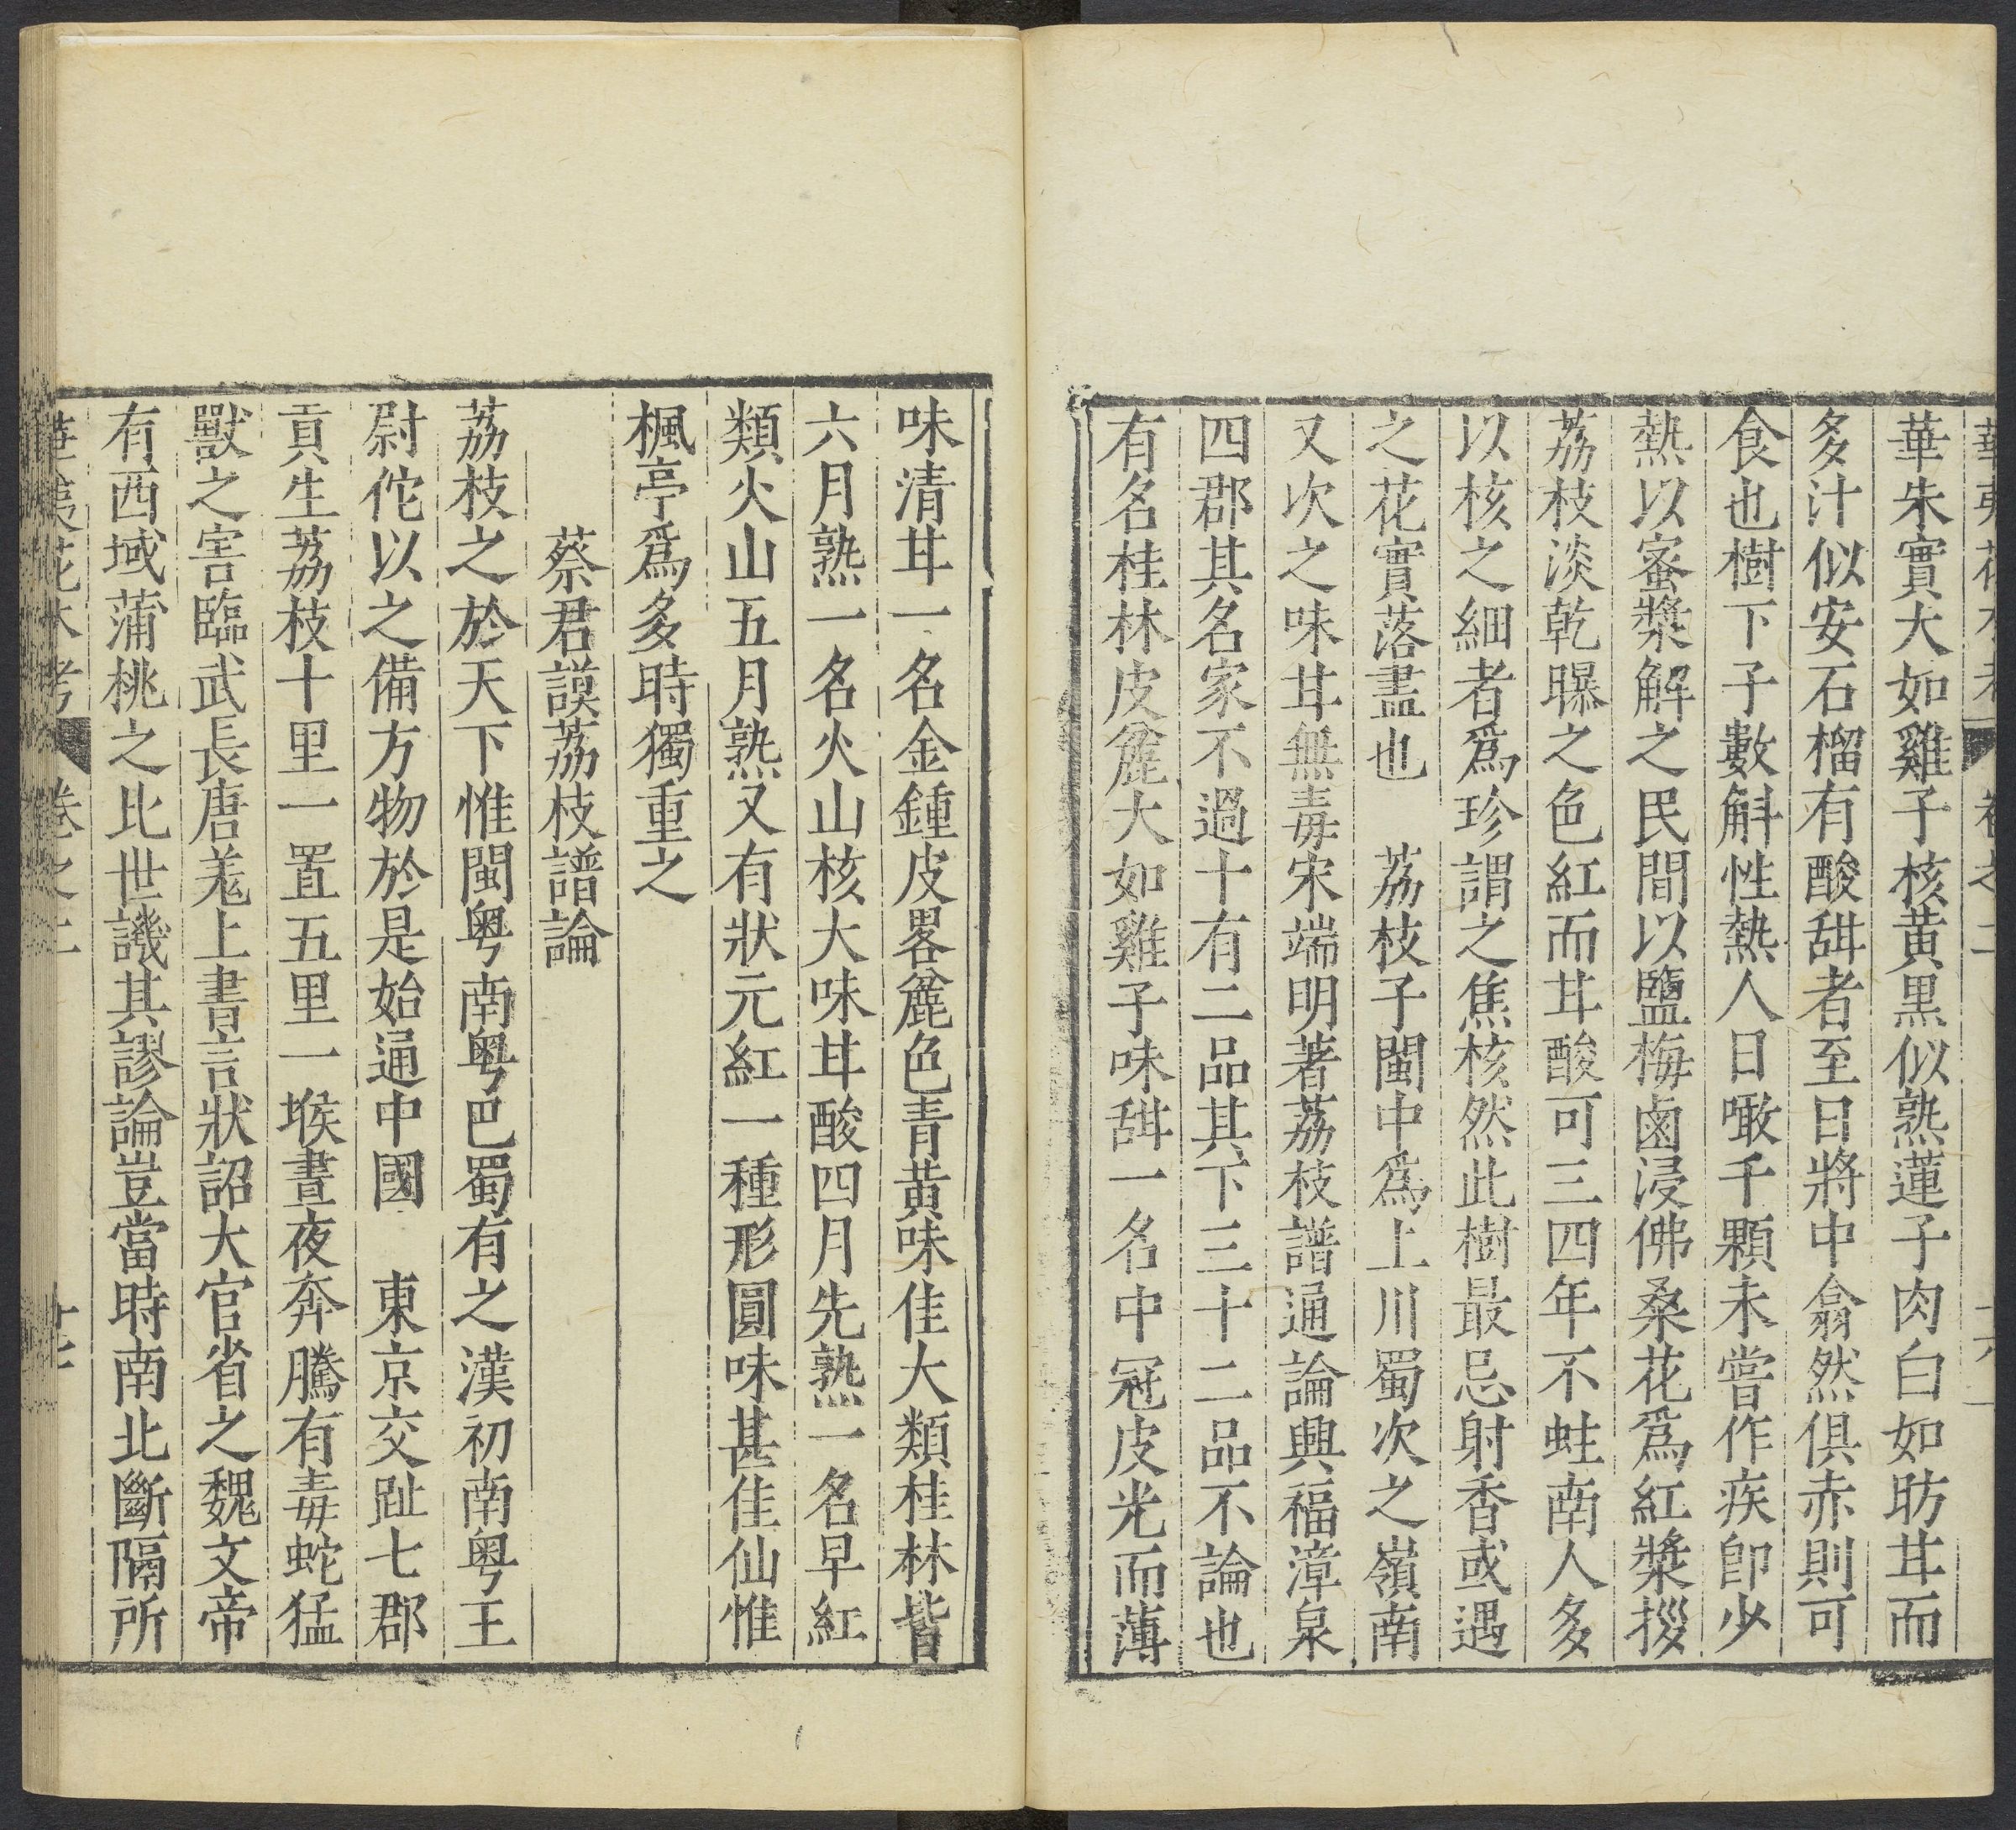 華朱實大如雞子核黃黒似熟蓮子肉白如肪甘而
多汁似安石榴有酸甜者至日將中翕然俱赤則可
食也樹下子數斛性熱人日噉千顆未嘗作疾卽少
熱以蜜漿解之民間以鹽梅鹵浸佛桑花爲紅漿投
荔枝淡乾曝之色紅而甘酸可三四年不蛀南人多
以核之細者爲珍謂之焦核然此樹最忌射香或遇
之花實落盡也　荔枝子閩中爲上川蜀次之嶺南
又次之味甘無毒宋端明著荔枝譜通論興福漳泉
四郡其名家不過十有二品其下三十二品不論也
有名桂林皮麄大如雞子味甜一名中冠皮光而薄
味清甘一名金鍾皮畧麄色青黃味佳大類桂林皆
六月熟一名火山核大味甘酸四月先熟一名早紅
類火山五月熟又有狀元紅一種形圓味甚佳仙惟
楓亭爲多時獨重之
蔡君謨荔枝譜論
荔枝之於天下惟閩粤南粤巴蜀有之漢初南粤王
尉佗以之備方物於是始通中國　東京交趾七郡
貢生荔枝十里一置五里一堠晝夜奔騰有毒蛇猛
獸之害臨武長唐羗上書言狀詔大官省之魏文帝
有西域蒲桃之比世譏其謬論豈當時南北斷隔所
華夷花木考　卷之二